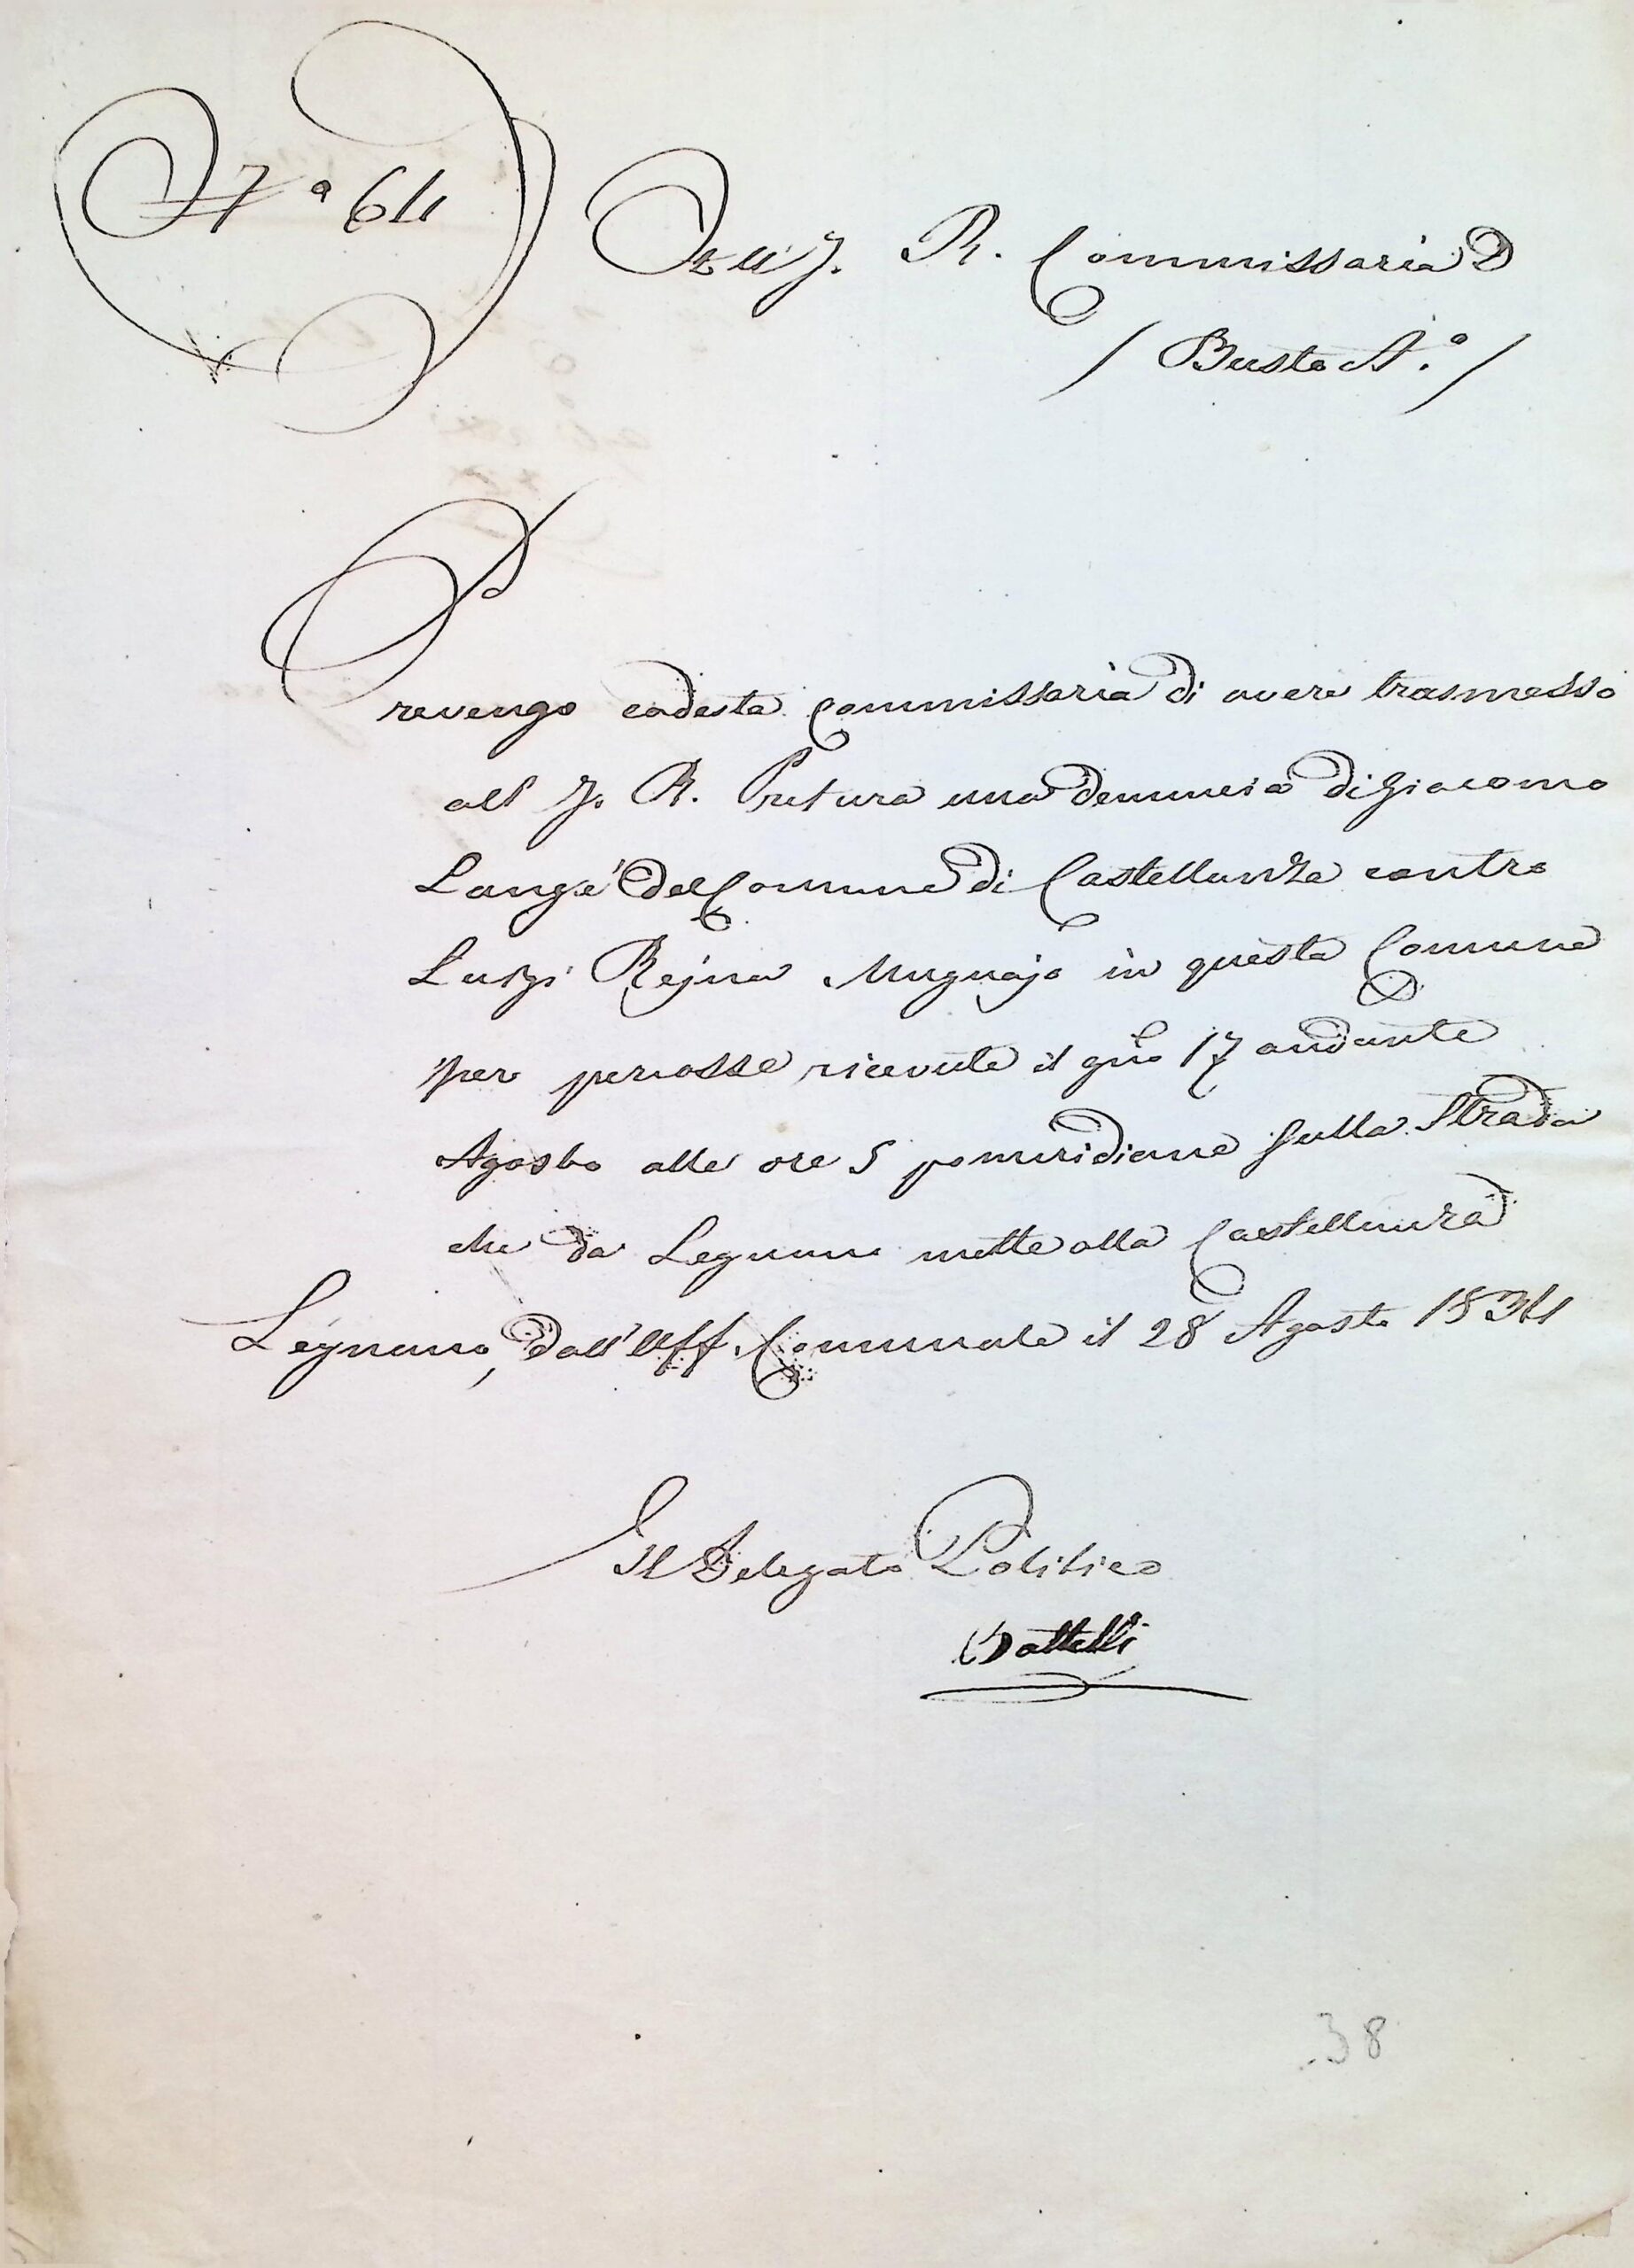 N.° 64
All'I. R. Commissaria D
/ Busto A.° /
Prevengo codesta Commissaria di avere trasmesso
all' I. R. Pretura una denuncia di Giacomo
Langé del Comune di Castellanza contro
Luigi Rejna Mugnajo in questo Comune
per percosse ricevute il gno 17 andante
Agosto alle ore 5 pomeridiane sulla Strada
che da Legnano mette alla Castellanza
Legnano, dall'Uff. Comunale il 28 Agosto 1834
Il Delegato Politico
Battelli
38